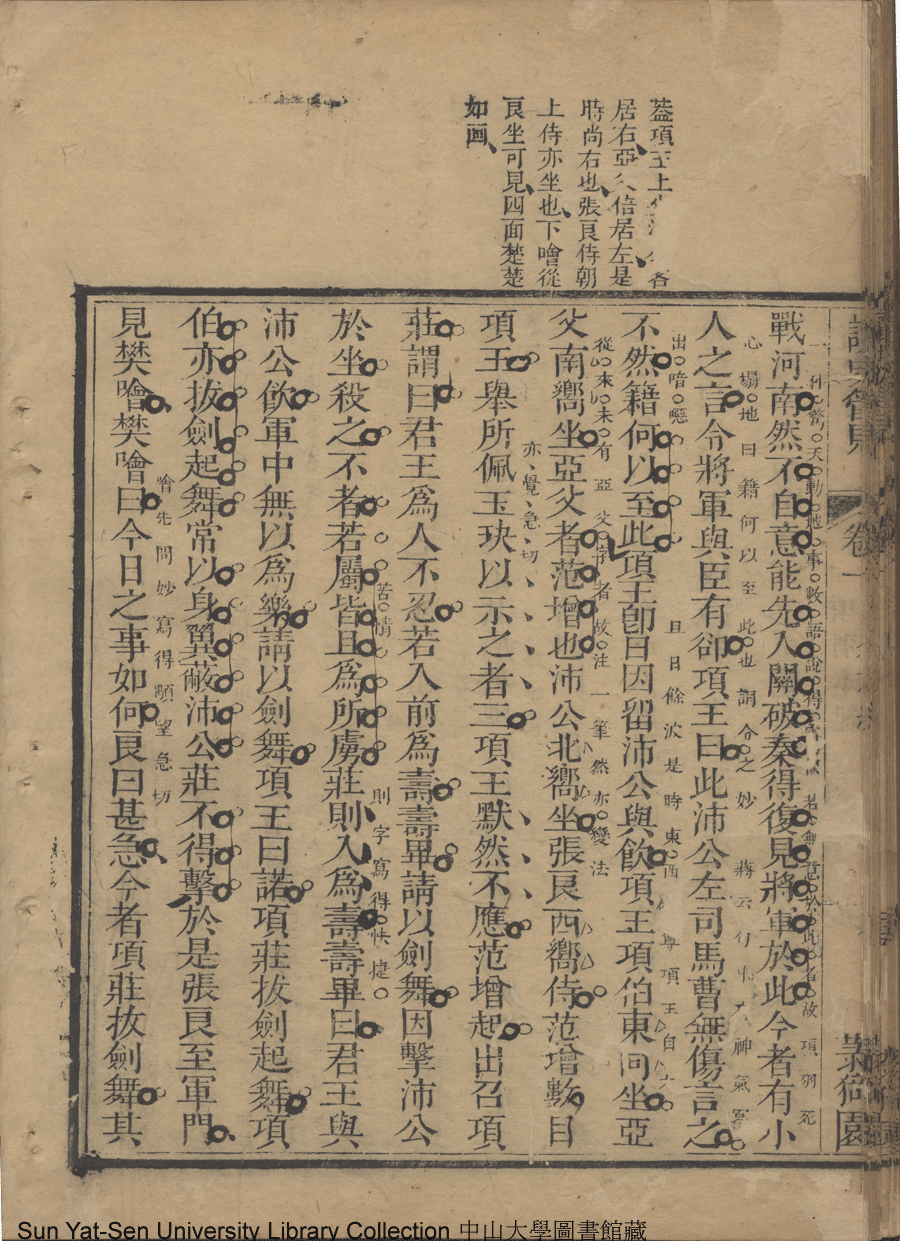 蓋項王上
居右亞父倍居左是
時尚右也張良侍朝
上侍亦坐也下噲從
良坐可見四面楚楚
如画
卷一
戰河南然不自意能先入關破秦得復見將軍於此今者有小
心塌地曰籍何以至此也詞令之妙
人之言令將軍與臣有郤項王曰此沛公左司馬曹無傷言之
出喑噁
且日餘波是時東西
不然籍何以至此項王卽日因留沛公與飮項王項伯東向坐亞
從來未有亞父字者故注一筆然亦變法
父南嚮坐亞父者范增也沛公北嚮坐張良西嚮侍范增數目
亦覺急切
項王舉所佩玉玦以示之者三項王默然不應范增起出召項
莊謂曰君王爲人不忍若入前爲壽壽畢請以劍舞因擊沛公
苦情
則字寫得快捷
於坐殺之不者若屬皆且爲所虜莊則入爲壽壽畢曰君王與
沛公飮軍中無以爲樂請以劍舞項王曰諾項莊拔劍起舞項
伯亦拔劍起舞常以身翼蔽沛公莊不得擊於是張良至軍門
噲先問妙寫得顒望急切
見樊噲樊噲曰今日之事如何良曰甚急今者項莊拔劍舞其
Sun Yat-Sen University Library Collection 中山大學圖書館藏